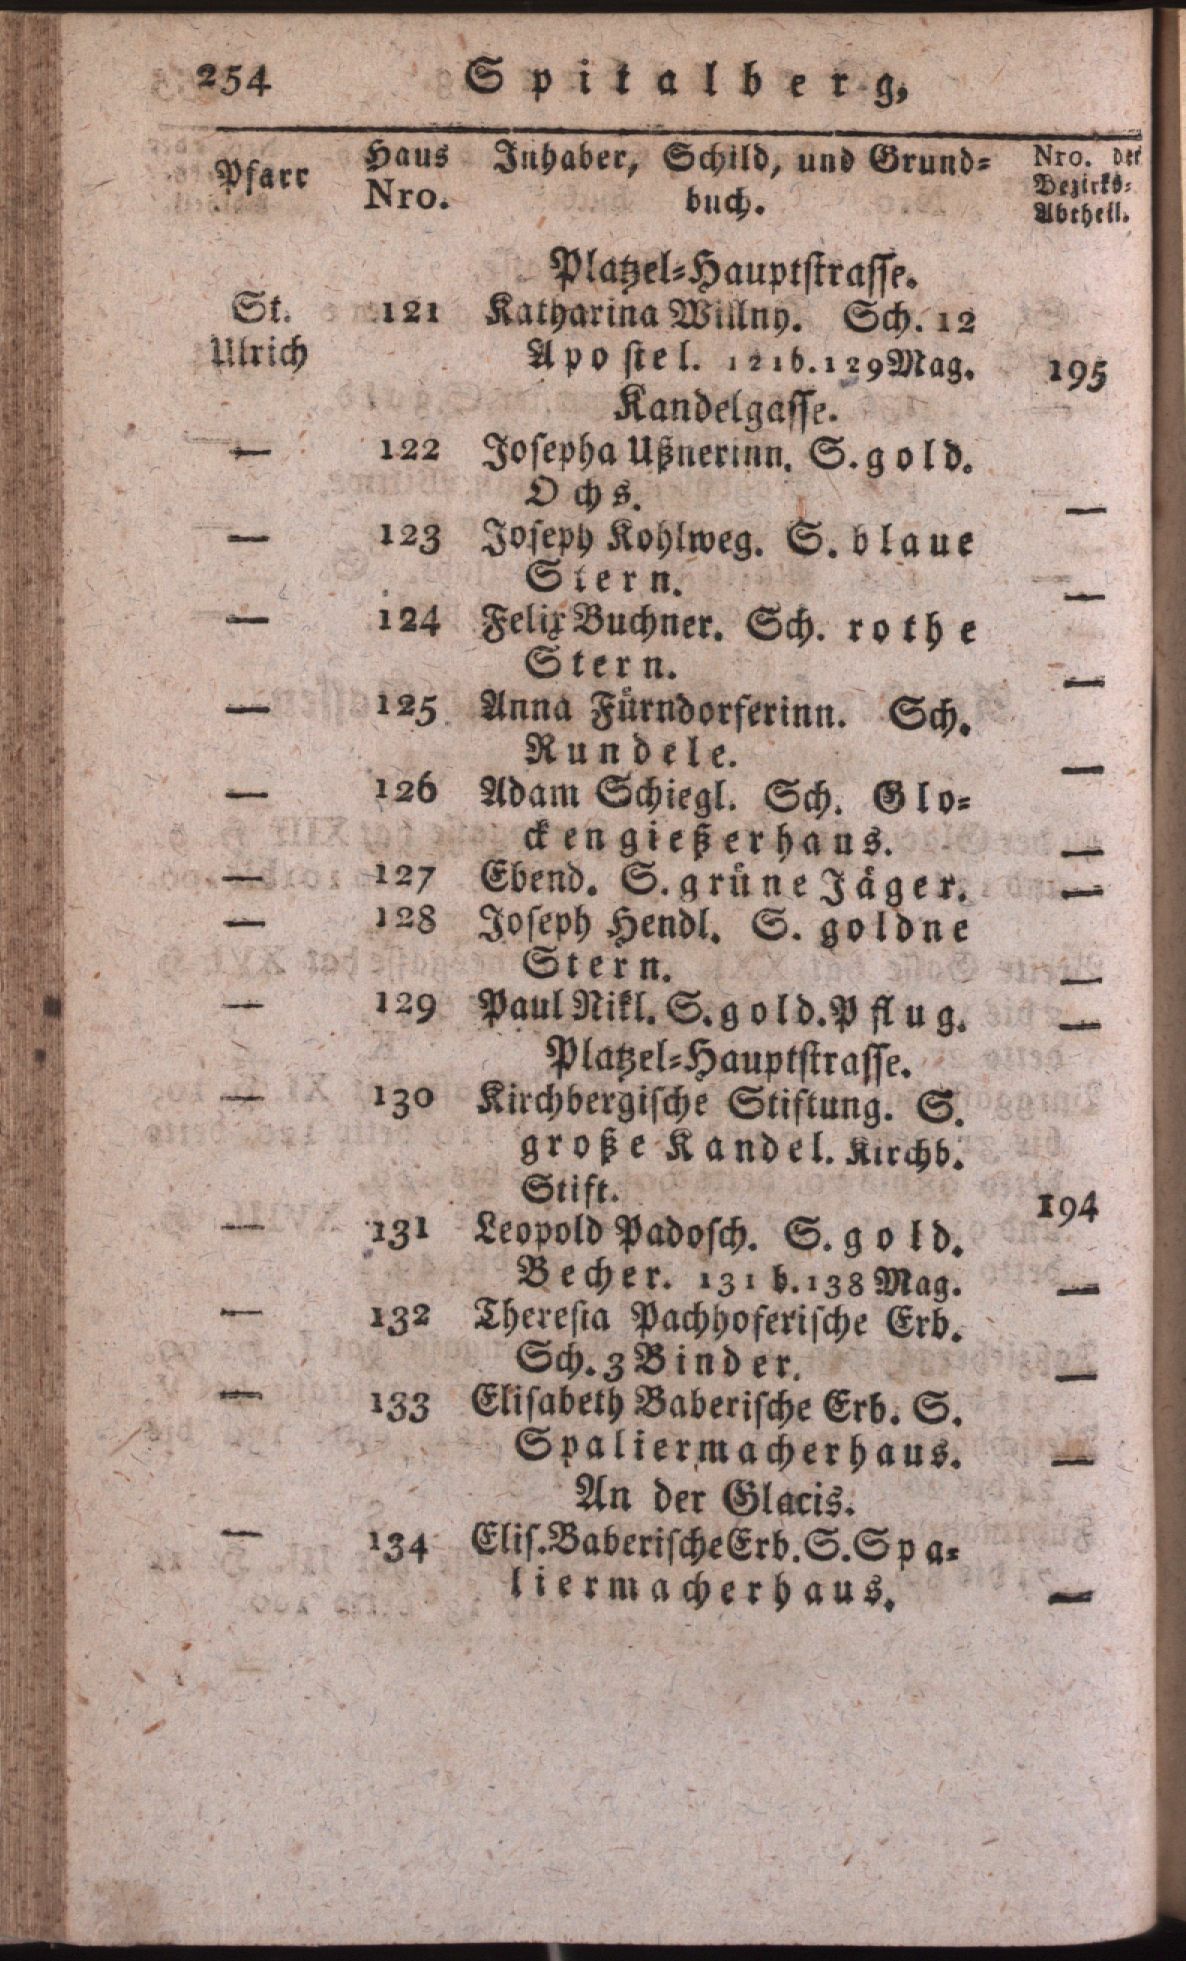 254 Spitalberg,
Pfarr Haus Nro. Inhaber, Schild, und Grund= buch. Nro. der Bezirks= Abtheil.
Platzel=Hauptstrasse.
St. 121 Katharina Willny. Sch. 12
Ulrich Apostel. 121b.129 Mag. 195
Kandelgasse.
— 122 Josepha Ußnerinn. S. gold.
Ochs. —
— 123 Joseph Kohlweg. S. blaue
Stern. —
— 124 Felix Buchner. Sch. rothe
Stern. —
— 125 Anna Fürndorferinn. Sch.
Rundele. —
— 126 Adam Schiegl. Sch. Glo=
ckengießerhaus. —
— 127 Ebend. S. grüne Jäger. —
— 128 Joseph Hendl. S. goldne
Stern. —
— 129 Paul Nikl. S. gold. Pflug. —
Platzel=Hauptstrasse.
— 130 Kirchbergische Stiftung. S.
große Kandel. Kirchb.
Stift. 194
— 131 Leopold Padosch. S. gold.
Becher. 131 b. 138 Mag. —
— 132 Theresia Pachhoferische Erb.
Sch. 3 Binder. —
— 133 Elisabeth Baberische Erb. S.
Spaliermacherhaus. —
An der Glacis.
— 134 Elis. Baberische Erb. S. Spa=
liermacherhaus. —